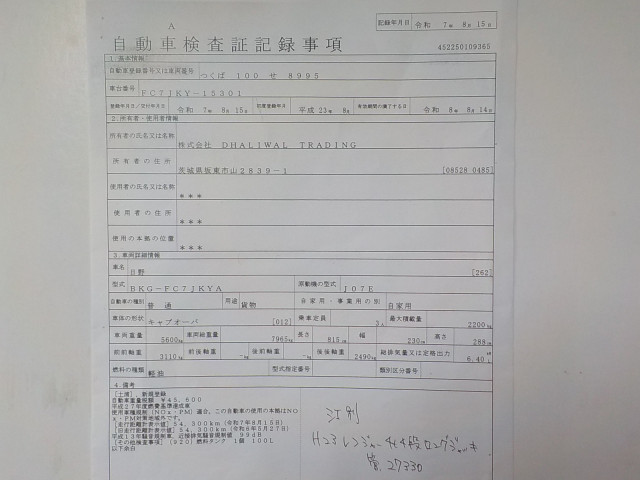 A
記録年月日 令和 7年 8月 15日
自動車検査証記録事項
452250109365
1.基本情報
自動車登録番号又は車両番号 つくば 100 せ 8995
車台番号 FC7JKY-15301
登録年月日/交付年月日 令和 7年 8月 15日 初度登録年月 平成 23年 8月 有効期間の満了する日 令和 8年 8月 14日
2.所有者・使用者情報
所有者の氏名又は名称 株式会社 DHALIWAL TRADING
所有者の住所 茨城県坂東市山2839-1 [08528 0485]
使用者の氏名又は名称 ***
使用者の住所 ***
使用の本拠の位置 ***
3.車両詳細情報
車名 日野 [262]
型式 BKG-FC7JKYA 原動機の型式 J07E
自動車の種別 普通 用途 貨物 自家用・事業用の別 自家用
車体の形状 キャブオーバ [012] 乗車定員 3人 最大積載量 2200kg
車両重量 5600kg 車両総重量 7965kg 長さ 815cm 幅 230cm 高さ 288cm
前前軸重 3110kg 前後軸重 -kg 後前軸重 -kg 後後軸重 2490kg 総排気量又は定格出力 6.40L
燃料の種類 軽油 型式指定番号 類別区分番号
4.備考
[土浦],新規登録
自動車重量税額 ¥45,600
平成27年度燃費基準達成車
使用車種規制(NOx・PM)適合,この自動車の使用の本拠はNO
x・PM対策地域外です。
[走行距離計表示値] 54,300km(令和7年8月15日)
[旧走行距離計表示値] 54,300km(令和6年5月27日)
平成13年騒音規制車,近接排気騒音規制値 99dB
[その他検査事項](920)燃料タンク 1個 100L
以下余白
江別
H23 レンジャー 4段ロングジャッキ
27330